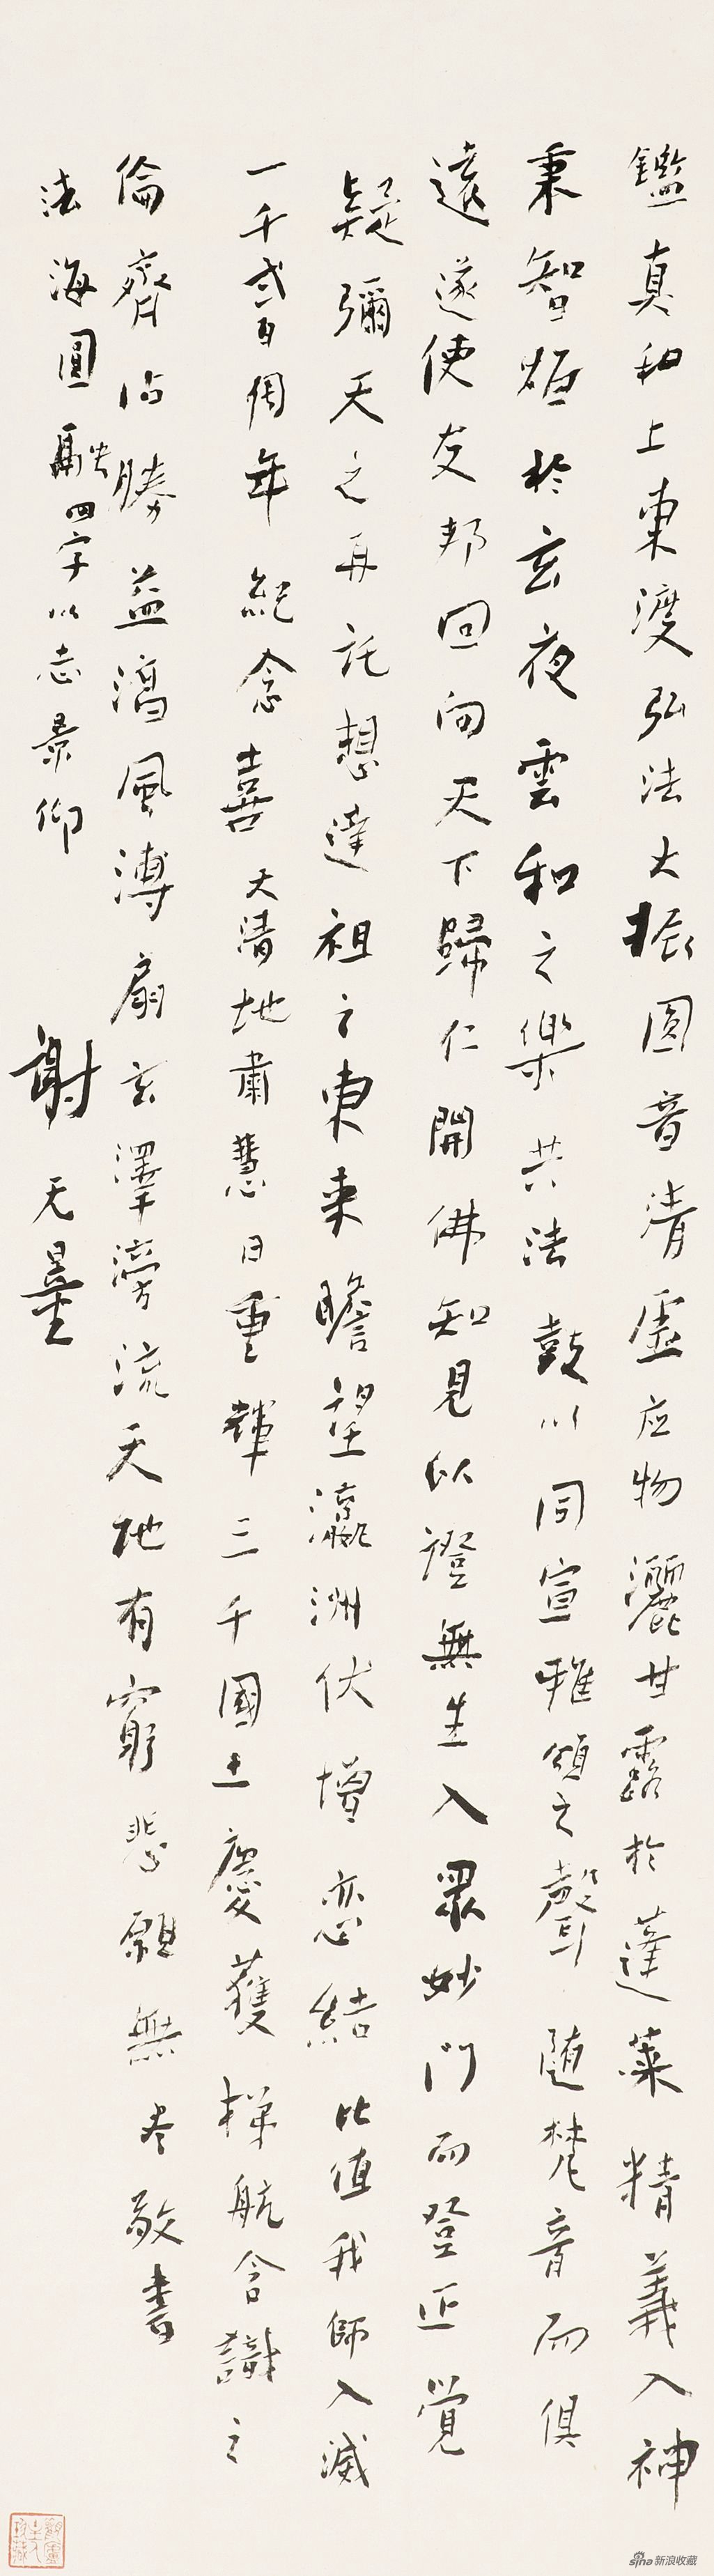 鑑真和上東渡弘法大振圓音清虛应物灑甘露於蓬萊精義入神
秉智炬於玄夜雲和之樂共法鼓以同宣雅頌之聲随梵音而俱
遠遂使友邦回向天下歸仁開佛知見以證無生入眾妙門而登正覺
疑彌天之再託想達祖之東来瞻望瀛洲伏增恋結比值我師入滅
一千弍百周年紀念喜天清地肅慧日重輝三千國土慶獲梯航含識之
倫齊沾勝益滈風溥扇玄澤滂流天地有窮悲願無尽敬書
法海圓融四字以志景仰
謝无量
sina新浪收藏